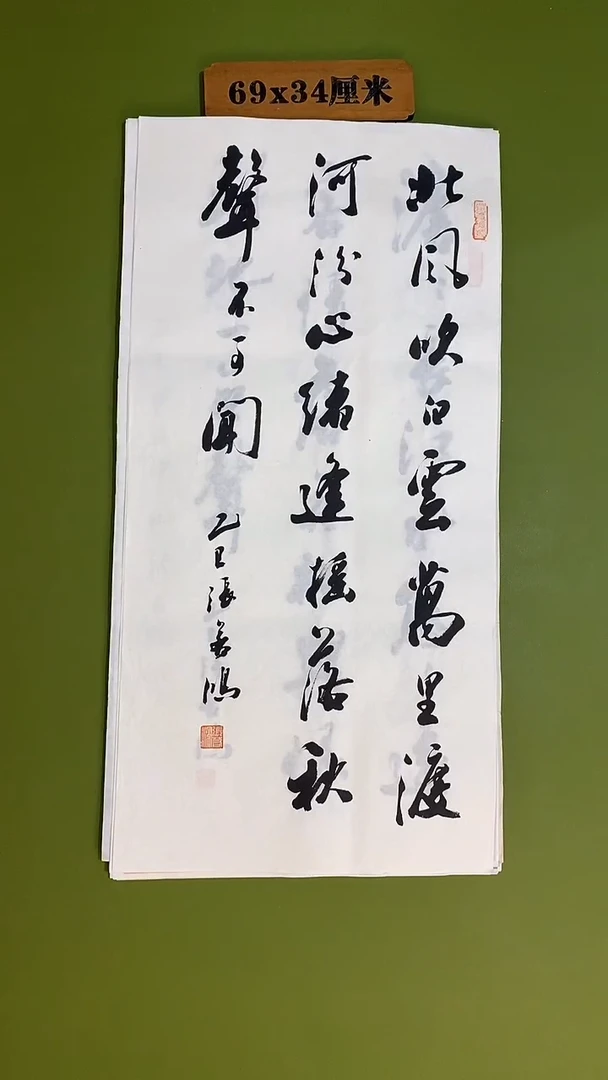 69x34厘米
北風吹白雲萬里渡
河汾心緒逢摇落秋
聲不可聞
乙巳張善鴻